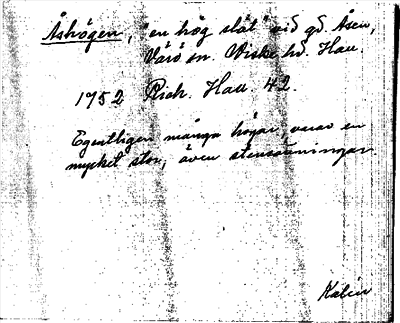 Åshögen, "en hög slät" vid gd Åsen,
Värö sn. Viske hd. Hall.
1752 Rich. Hall. 42.
Egentligen många högar, varav en
mycket stor, även stensättningar.
Kalén